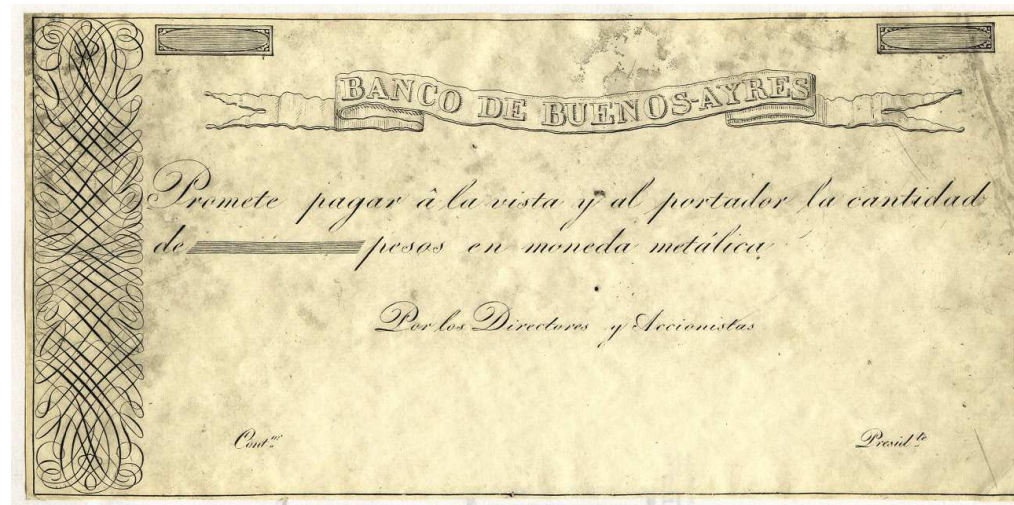 BANCO DE BUENOS-AYRES
Promete pagar â la vista y al portador la cantidad
de pesos en moneda metálica
Por los Directores y Accionistas
Cont.ᵒʳ Presid.ᵗᵉ